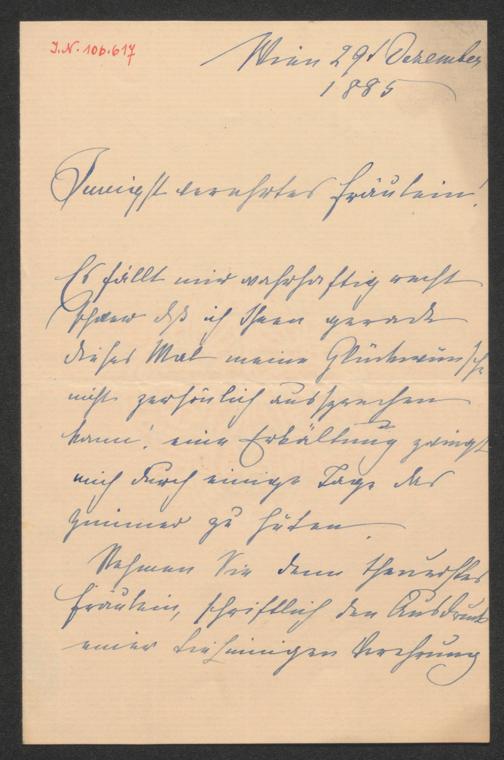 I.N. 106.617
Wien 29t Dezember
1885
Innigst verehrtes Fräulein!
Es fällt mir wahrhaftig recht
schwer dß ich Ihnen gerade
dieses Mal meine Glückwünsche
nicht persönlich aussprechen
kann! eine Erkältung zwingt
mich durch einige Tage das
Zimmer zu hüten.
Nehmen Sie denn theuerstes
Fräulein, schriftlich den Ausdruck
einer tiefinnigen Verehrung